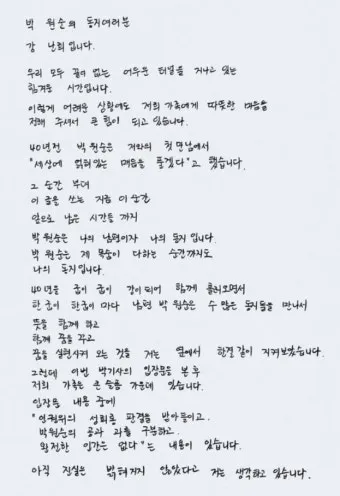 박 원순의 동지여러분
강 난희입니다.
우리 모두 끝이 없는 어두운 터널을 거니고 있는
힘겨운 시간입니다.
이렇게 어려운 상황에도 저희 가족에게 따뜻한 마음을
전해 주셔서 큰 힘이 되고 있습니다.
40년전 박 원순은 저와의 첫 만남에서
"세상에 얽혀있는 매듭을 풀겠다"고 했습니다.
그 순간 부터
이 글을 쓰는 지금 이 순간
앞으로 남은 시간들 까지
박 원순은 나의 남편이자 나의 동지 입니다.
박 원순은 제 목숨이 다하는 순간까지도
나의 동지입니다.
40년을 굽이 굽이 같이되어 함께 흘러오면서
한 굽이 한굽이 마다 남편 박 원순은 수 많은 동지들을 만나서
뜻을 함께 하고
함께 꿈을 꾸고
꿈을 실현시켜 오는 것을 저는 옆에서 한결 같이 지켜보았습니다.
그런데 이번 박기사의 입장문을 본 후
저희 가족은 큰 슬픔 가운데 있습니다.
입장문 내용 중에
"인권위의 성희롱 판결을 받아들이고.
박원순의 공과 과를 구분하고.
완전한 인간은 없다"는 내용이 있습니다.
아직 진실은 밝혀지지 않았다고 저는 생각하고 있습니다.